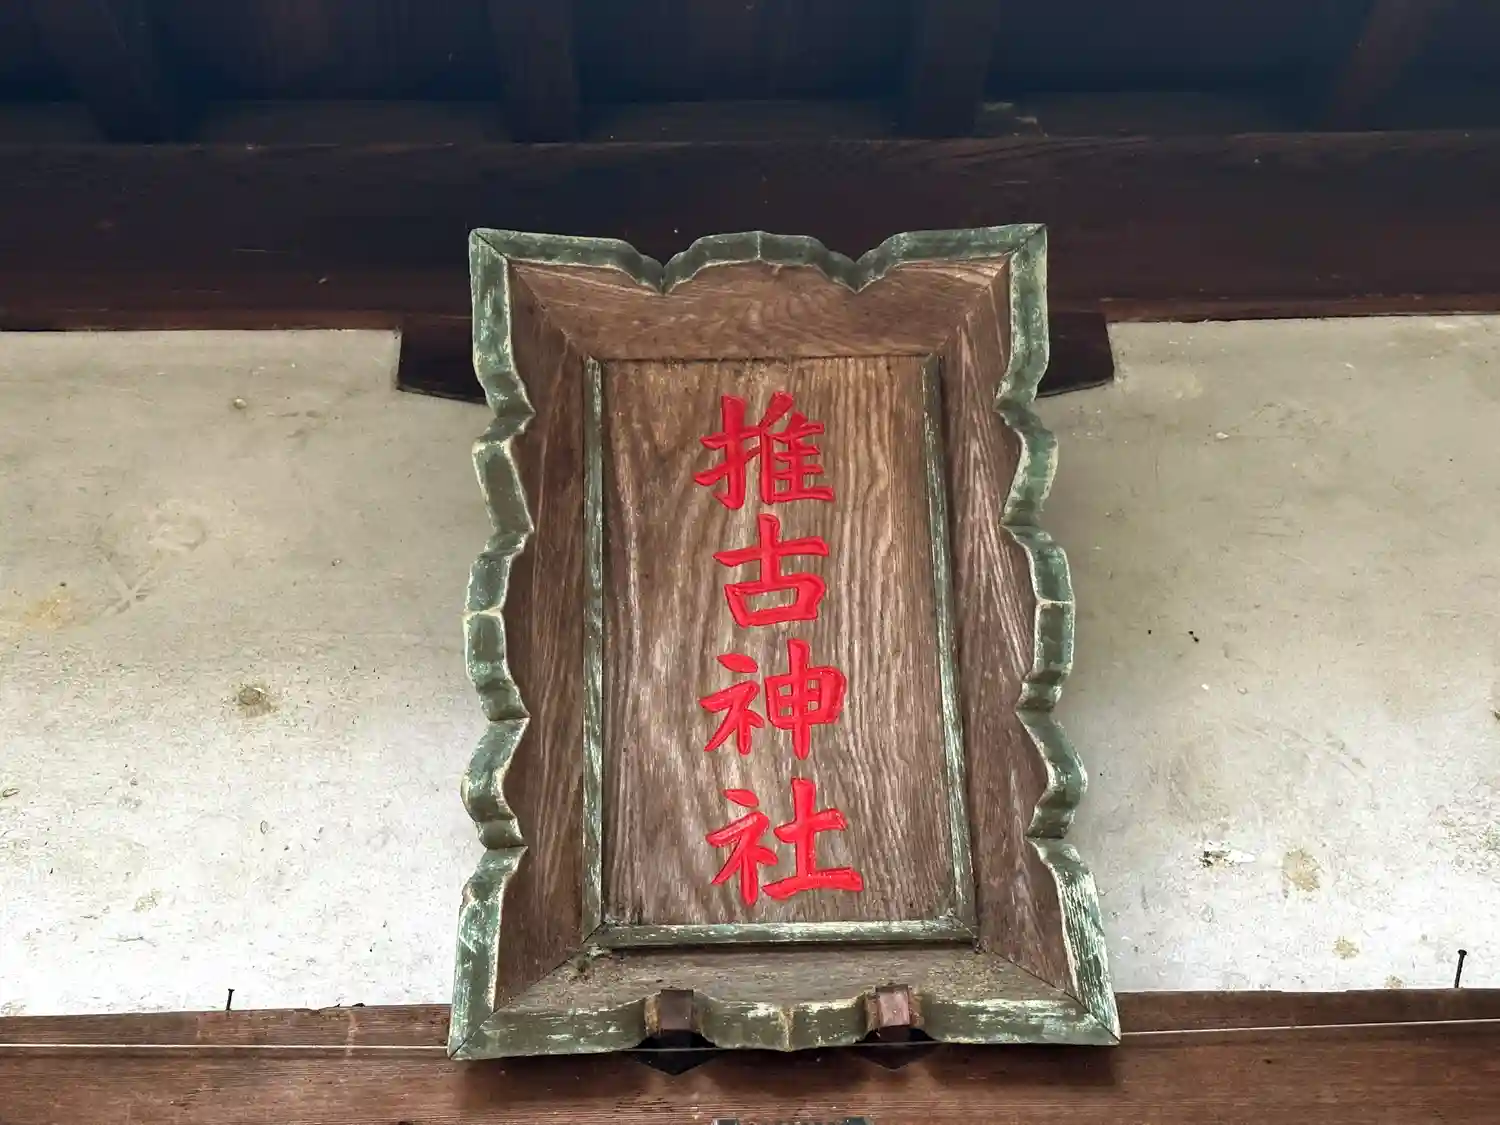 推古神社